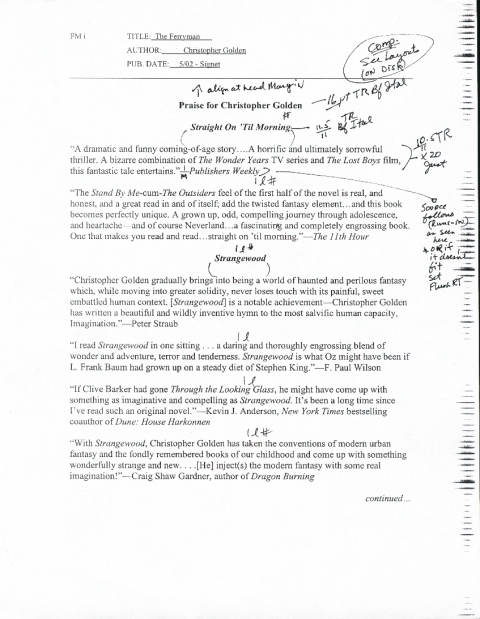 FM i
TITLE: The Ferryman
AUTHOR: Christopher Golden
PUB. DATE: 5/02 - Signet
Comp-
See Layouts
(ON DISK)
↑ align at head Margin
Praise for Christopher Golden
16 pt TR Bf Ital
#
Straight On 'Til Morning
11.5/11 TR Bf Ital
"A dramatic and funny coming-of-age story….A horrific and ultimately sorrowful
thriller. A bizarre combination of The Wonder Years TV series and The Lost Boys film,
this fantastic tale entertains."—Publishers Weekly
10.5 TR
11
x 20
Just
1 l #
"The Stand By Me-cum-The Outsiders feel of the first half of the novel is real, and
honest, and a great read in and of itself; add the twisted fantasy element…and this book
becomes perfectly unique. A grown up, odd, compelling journey through adolescence,
and heartache—and of course Neverland…a fascinating and completely engrossing book.
One that makes you read and read…straight on 'til morning."—The 11th Hour
Source
follows
(Runs-in)
as seen
here
* OR if
it doesn't
fit
set
Flush RT
1 l #
Strangewood
"Christopher Golden gradually brings into being a world of haunted and perilous fantasy
which, while moving into greater solidity, never loses touch with its painful, sweet
embattled human context. [Strangewood] is a notable achievement—Christopher Golden
has written a beautiful and wildly inventive hymn to the most salvific human capacity,
Imagination."—Peter Straub
1 l
"I read Strangewood in one sitting . . . a daring and thoroughly engrossing blend of
wonder and adventure, terror and tenderness. Strangewood is what Oz might have been if
L. Frank Baum had grown up on a steady diet of Stephen King."—F. Paul Wilson
1 l
"If Clive Barker had gone Through the Looking Glass, he might have come up with
something as imaginative and compelling as Strangewood. It's been a long time since
I've read such an original novel."—Kevin J. Anderson, New York Times bestselling
coauthor of Dune: House Harkonnen
1 l #
"With Strangewood, Christopher Golden has taken the conventions of modern urban
fantasy and the fondly remembered books of our childhood and come up with something
wonderfully strange and new. . . .[He] inject(s) the modern fantasy with some real
imagination!"—Craig Shaw Gardner, author of Dragon Burning
continued…